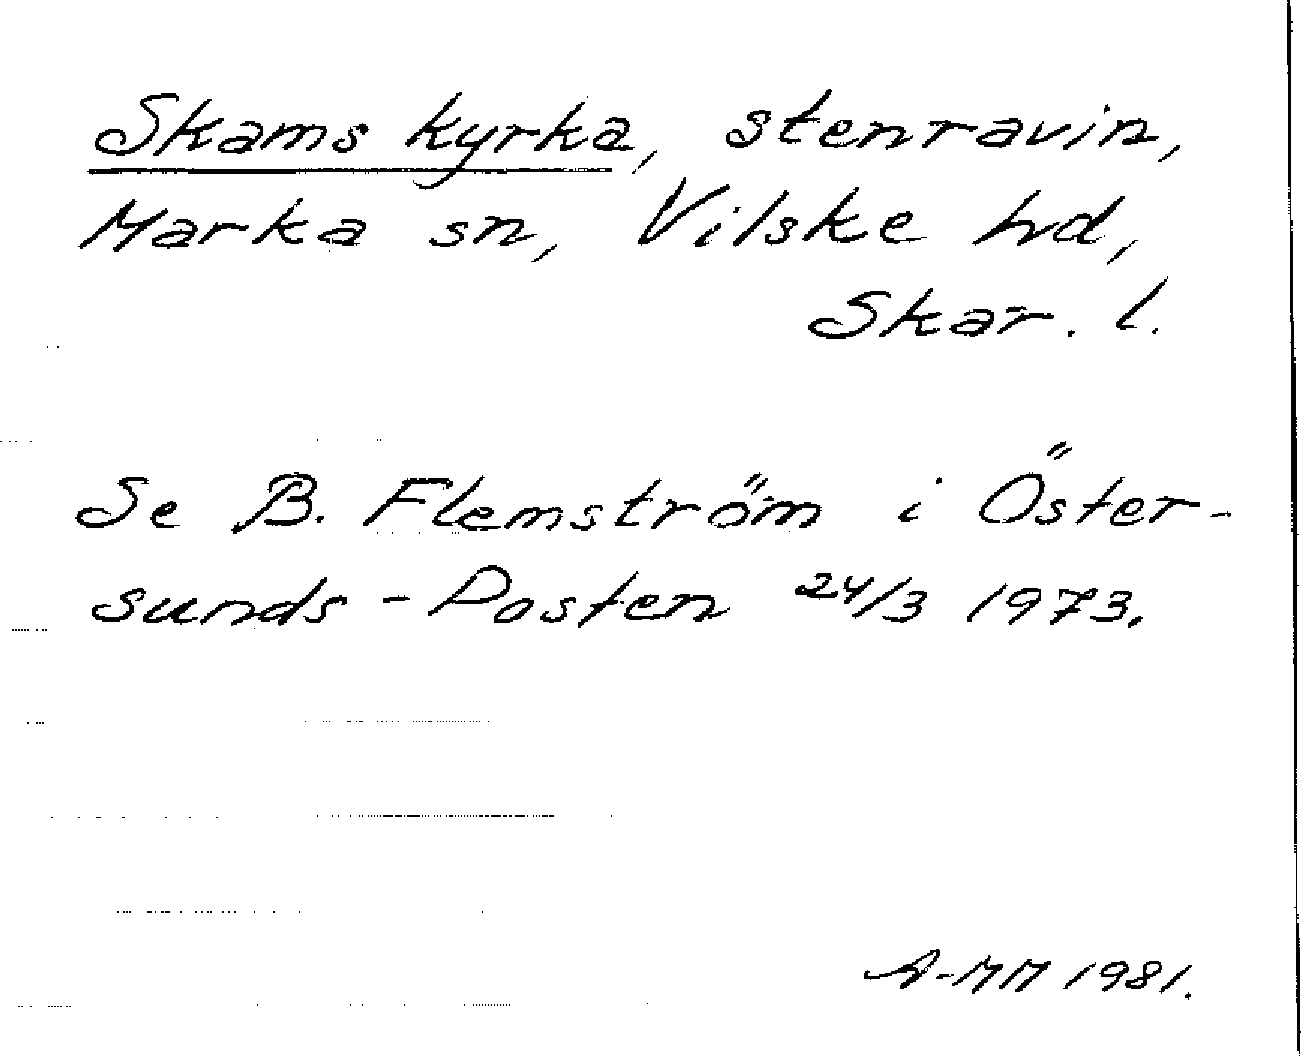 Skams kyrka, stenravin,
Marka sn, Vilske hd,
Skar. l.
Se B. Flemström i Öster-
sunds-Posten 24/3 1973.
A-MM 1981.